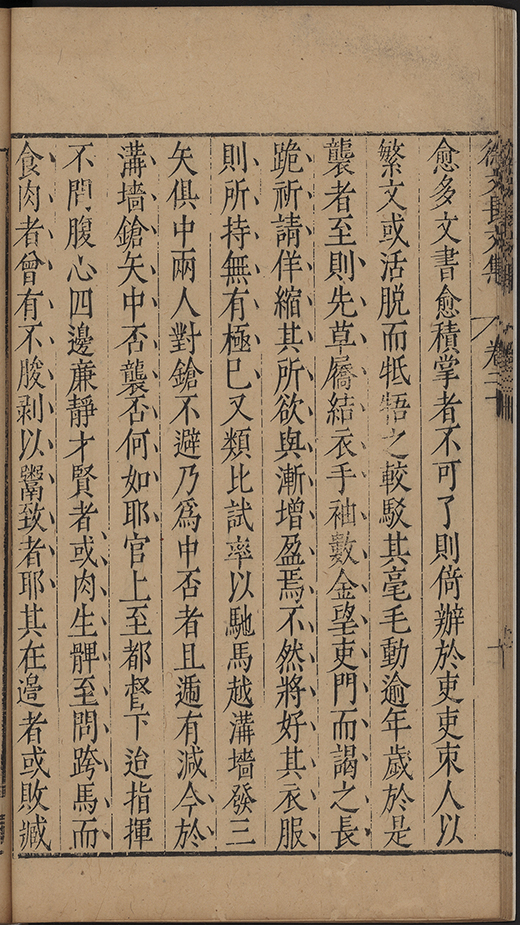 徐文長文集 卷二十
愈多文書愈積掌者不可了則倚辦於吏吏束人以
繁文或活脱而牴牾之較駁其毫毛動逾年歲於是
襲者至則先草屩結衣手袖數金望吏門而謁之長
跪祈請佯縮其所欲與漸増盈焉不然將好其衣服
則所持無有極已又類比試率以馳馬越溝墻發三
矢俱中兩人對鎗不避乃爲中否者且遞有減今於
溝墻鎗矢中否襲否何如耶官上至都督下迨指揮
不問腹心四邉廉靜才賢者或肉生髀至問跨馬而
食肉者曾有不朘剥以鬻致者耶其在邉者或敗臧